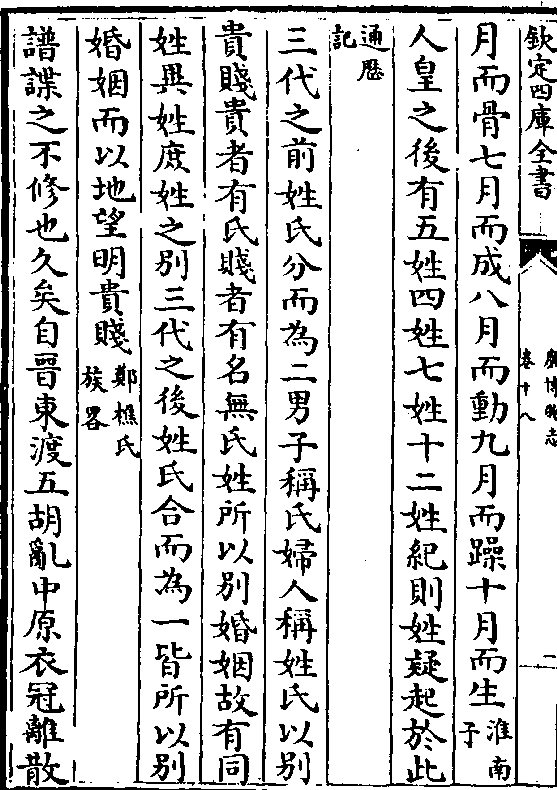 欽定四庫全書
廣博物志
卷十八
二
月而骨七月而成八月而動九月而躁十月而生淮南
子
人皇之後有五姓四姓七姓十二姓紀則姓疑起於此
通歷
記
三代之前姓氏分而為二男子稱氏婦人稱姓氏以别
貴賤貴者有氏賤者有名無氏姓所以别婚姻故有同
姓異姓庶姓之别三代之後姓氏合而為一皆所以别
婚姻而以地望明貴賤鄭樵氏
族畧
譜諜之不修也久矣自晉東渡五胡亂中原衣冠離散